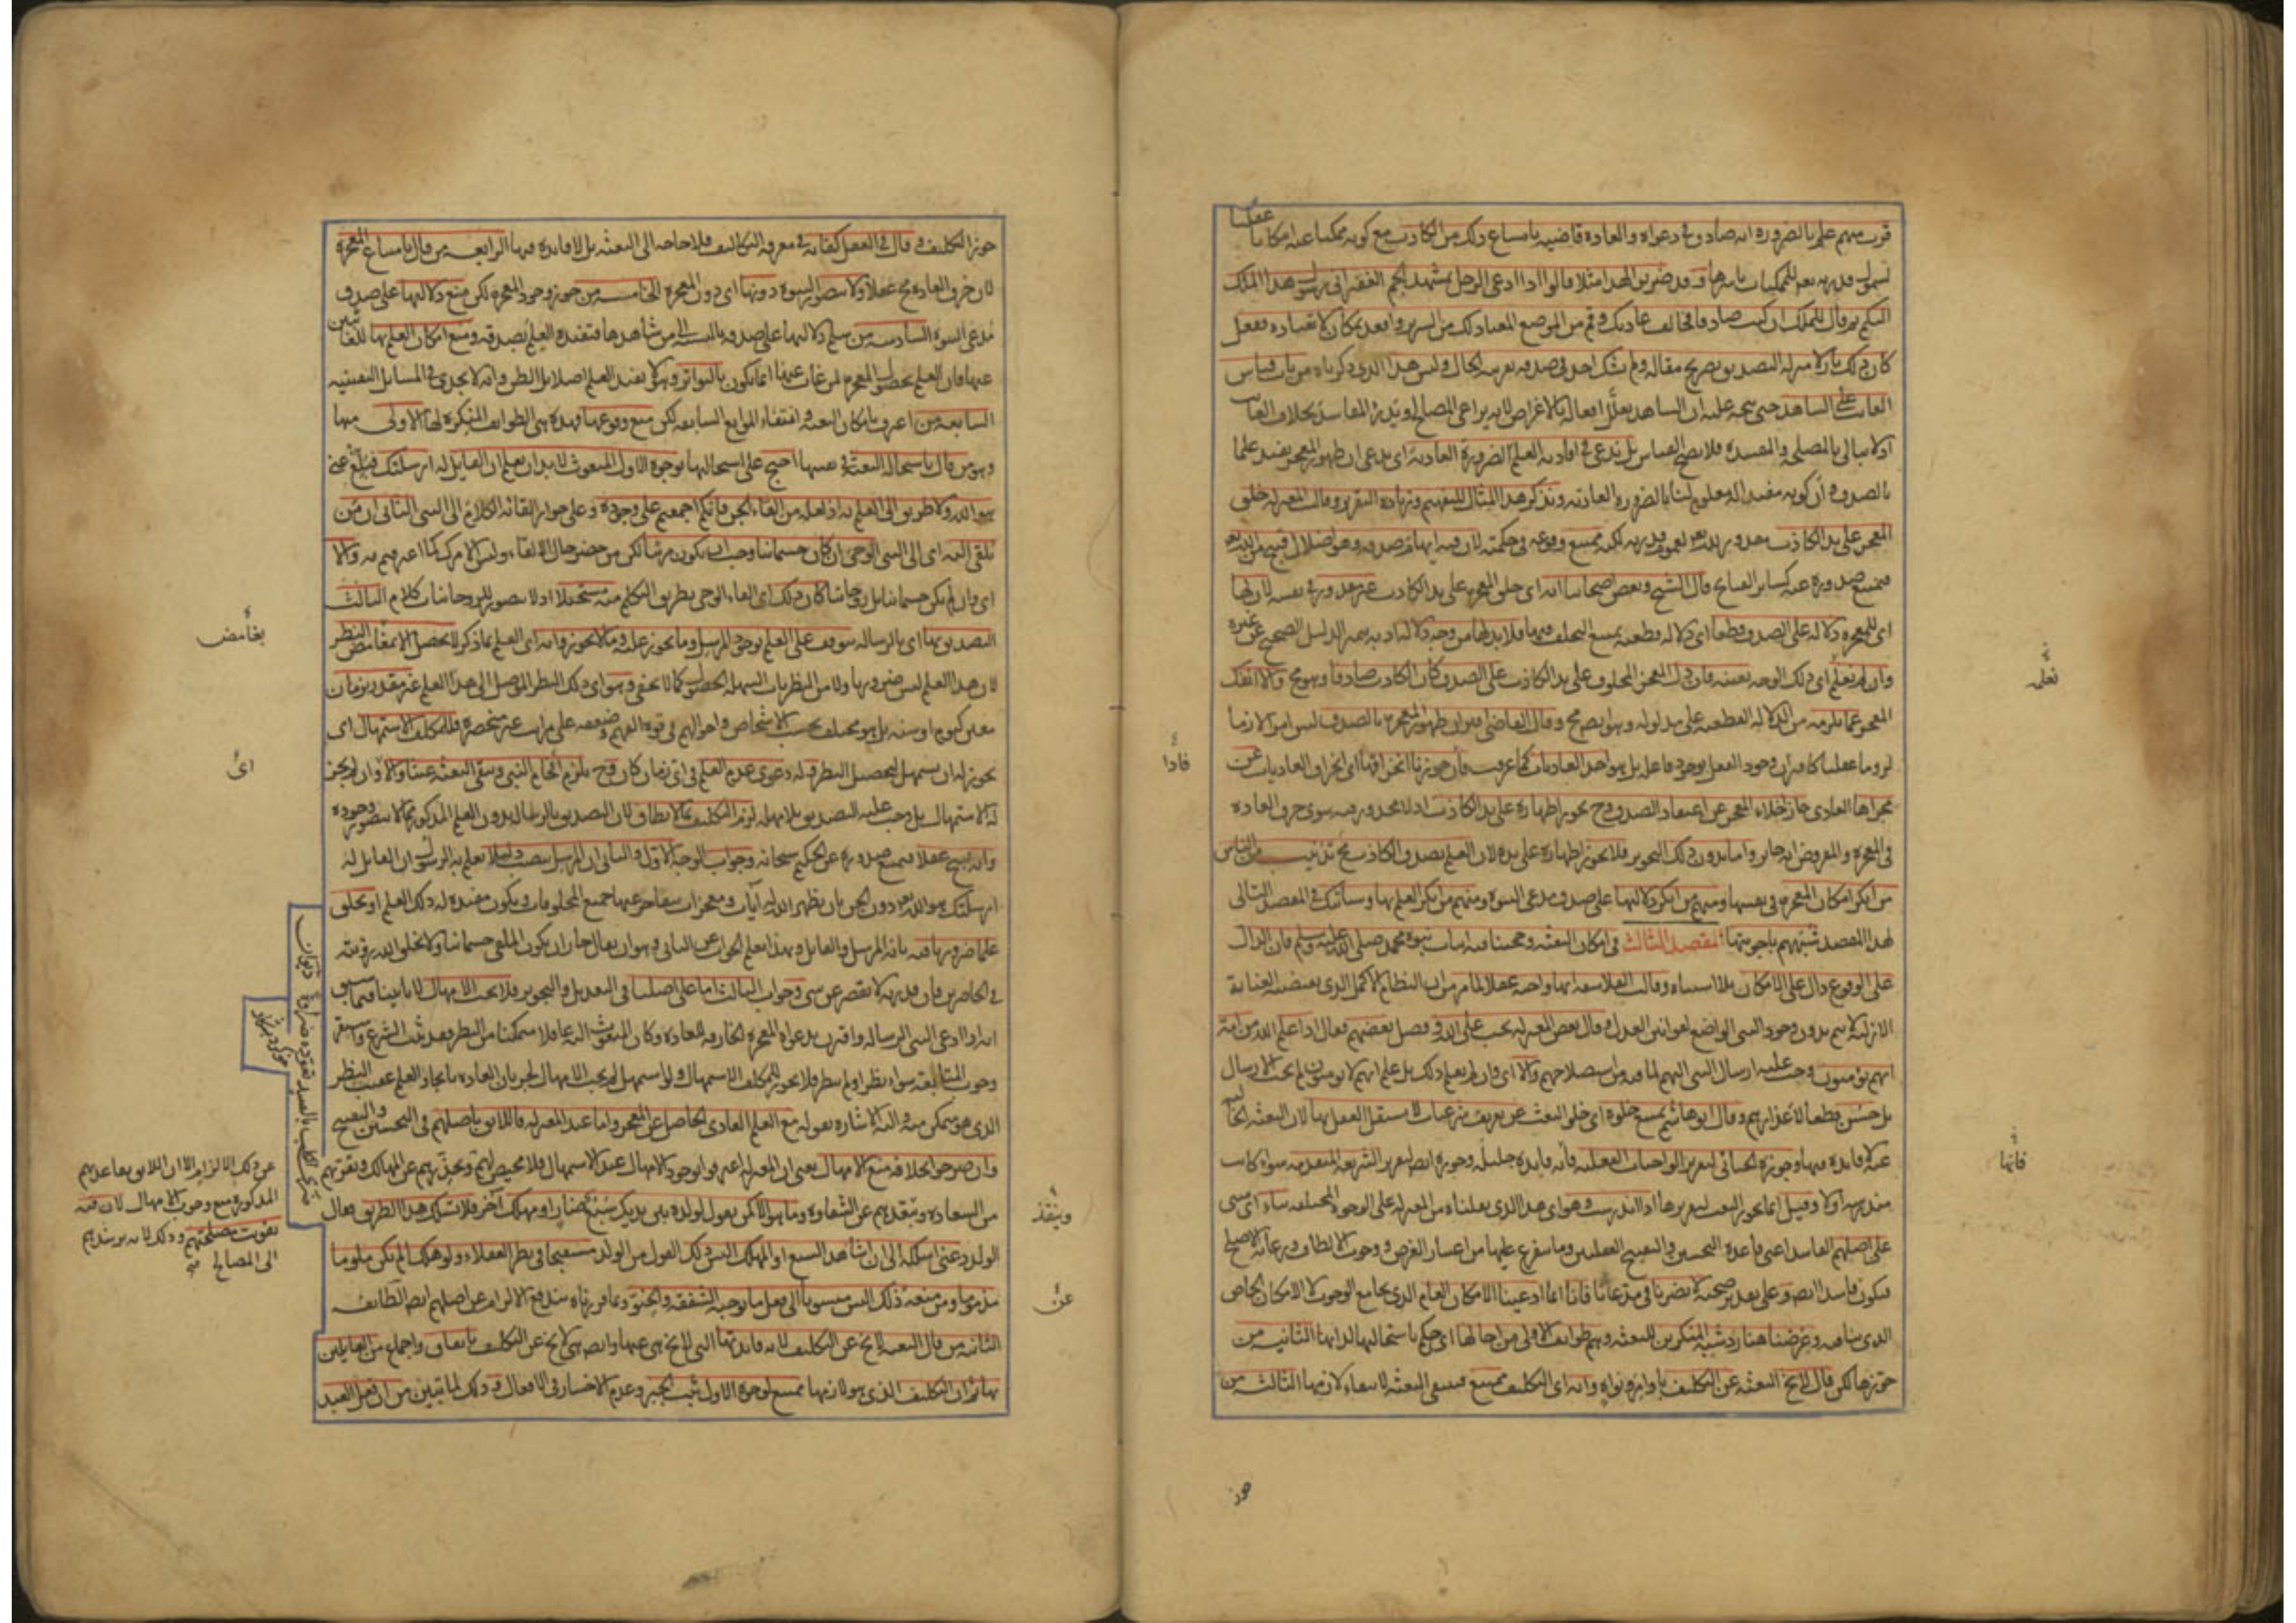 عقليا
قرب منهم علم بالضرورة انه صادق فى دعواه والعادة قاضية بامتناع ذلك من الكاذب مع كونه ممكنا عنه امكانا
لشمول قدرته تعالى للممكنات باسرها وقد ضربوا لهذا مثلا قالوا اذا ادعى الرجل بمشهد الجم الغفير انى رسول هذا الملك
اليكم ثم قال للملك ان كنت صادقا فخالف عادتك وقم من الموضع المعتاد لك من السرير واقعد بمكان لا تعتاده ففعل
كان ذلك نازلا منزلة التصديق بصريح مقاله ولم يشك احد فى صدقه بقرينة الحال وليس هذا الذى ذكرناه من باب قياس
الغائب على الشاهد حتى يتجه عليه ان الشاهد يعلل افعاله بالاغراض لانه يراعى المصالح ويدرء المفاسد بخلاف الغائب
اذ لا يبالى بالمصلحة والمفسدة فلا يصح القياس بل ندعى فى افادته العلم الضرورة العادية اى ندعى ان ظهور المعجز يفيد علما
بالصدق وان كونه مفيدا له معلوم لنا بالضرورة العادية ونذكر هذا المثال للتفهيم وزيادة التقرير وقالت المعتزلة خلق
المعجز على يد الكاذب مقدور لله تعالى لعموم قدرته لكنه ممتنع وقوعه فى حكمته لان فيه ايهام صدقه وهو اضلال قبيح من الله تعالى
فيمتنع صدوره عنه كسائر القبائح قال الشيخ وبعض اصحابنا انه اى خلق المعجزة على يد الكاذب غير مقدور فى نفسه لان لها
اى للمعجزة دلالة على الصدق قطعا اى دلالة قطعية يمتنع التخلف فيها فلا بد لها من وجه دلالة اذ به يتميز الدليل الصحيح عن غيره
وان لم نعلم اى ذلك الوجه بعينه فان دل المعجز المخلوق على يد الكاذب على الصدق كان الكاذب صادقا وهو مح والا انفك
المعجز عما يلزمه من الدلالة القطعية على مدلوله وهو ايضا مح وقال القاضى اقتران ظهور المعجزة بالصدق ليس امرا لازما
لزوما عقليا كاقتران وجود الفعل بوجود فاعله بل هو احد العاديات كما عرفت فان جوزنا انخراقها اى انخراق العاديات عن
مجراها العادى جاز اخلاء المعجز عن اعتقاد الصدق وح يجوز اظهاره على يد الكاذب اذ لا محذور فيه سوى خرق العادة
فى المعجزة والمفروض انه جائز واما بدون ذلك التجويز فلا يجوز اظهاره على يده لان العلم بصدق الكاذب مح تذنيب من الناس
من انكر امكان المعجزة فى نفسها ومنهم من انكر دلالتها على صدق مدعى النبوة ومنهم من انكر العلم بها وسيأتيك فى المقصد التالى
لهذا المقصد شبههم باجوبتها المقصد الثالث فى امكان البعثة وحجتنا فيه اثبات نبوة محمد صلى الله عليه وسلم فان الدال
على الوقوع دال على الامكان بلا اشتباه وقالت الفلاسفة انها واجبة عقلا لما مر من ان النظام الاكمل الذى يقتضيه العناية
الازلية لا يتم بدون وجود النبى الواضع لقوانين العدل وقال بعض المعتزلة يجب على الله وفصل بعضهم فقال اذا علم الله من امة
انهم يؤمنون وجب عليه ارسال النبى اليهم لما فيه من استصلاحهم والا اى وان لم يعلم ذلك بل علم انهم لا يؤمنون لم يجب الارسال
بل حسن قطعا لاعذارهم وقال ابو هاشم يمتنع خلوه اى خلو البعث عن تعريف شرعيات لا يستقل العقل بها لان البعثة الخالية
عنه لا فائدة فيها وجوزه الجبائى لتقرير الواجبات العقلية فانه فائدة جليلة وجوزه ايضا لتقرير الشريعة المتقدمة سواء كانت
مندرسة اولا وقيل انما يجوز البعث لتقريرها اذا اندرست وهو اى هذا الذى نقلناه من المعتزلة على الوجوه المختلفة بناء اى مبنى
على اصلهم الفاسد اعنى قاعدة التحسين والتقبيح العقليين وما يتفرع عليها من اعتبار الغرض ووجوب الالطاف ورعاية الاصلح
فيكون فاسدا ايضا وعلى تقدير صحته لا يضرنا فى مدعانا فانا انما ادعينا الامكان العام الذى يجامع الوجوب لا الامكان الخاص
الذى ينافيه وغرضنا هنا رد شبه المنكرين للبعثة وهم طوائف الاولى من احالها اى حكم باستحالتها لذاتها الثانية من
جوزها لكن قال لا يخ البعثة عن التكليف باوامر ونواه وانه اى التكليف ممتنع فينتفى البعثة لانتفاء لازمها الثالثة من
نعلم
فاذا
فانها
جوز
جوز التكليف وقال فى العقل كفاية فى معرفة التكاليف فلا حاجة الى البعثة بل لا فائدة فيها الرابعة من قال بامتناع المعجزة
لان خرق العادة مح عقلا ولا يتصور النبوة دونها اى دون المعجزة الخامسة من جوز وجود المعجزة لكن منع دلالتها على صدق
مدعى النبوة السادسة من سلم دلالتها على صدقه بالنسبة الى من شاهدها فتفيده العلم بصدقه ومنع امكان العلم بها للغائبين
عنها فان العلم بحصول المعجزة لمن غاب عنها انما يكون بالتواتر وهو لا يفيد العلم اصلا بل الظن وانه لا يجدى فى المسائل اليقينية
السابعة من اعترف بامكان البعثة وانتفاء الموانع السابقة لكن منع وقوعها فهذه هى الطوائف المنكرة لها الاولى منها
وهو من قال باستحالة البعثة فى نفسها احتج على استحالتها بوجوه الاول المبعوث لا بد ان يعلم ان القائل له ارسلتك فبلغ عنى
هو الله ولا طريق الى العلم به اذ لعله من القاء الجن فانكم اجمعتم على وجوده وعلى جواز القائه الكلام الى النبى الثانى ان من
يلقى اليه اى الى النبى الوحى ان كان جسمانيا وجب ان يكون مرئيا لكل من حضر حال الالقاء وليس الامر كما اعترفتم به والا
اى وان لم يكن جسمانيا بل روحانيا كان ذلك اى القاء الوحى بطريق التكلم منه مستحيلا اذ لا يتصور للروحانيات كلام الثالث
التصديق بها اى بالرسالة يتوقف على العلم بوجود المرسل وما يجوز عليه وما لا يجوز وانه اى العلم بما ذكر لا يحصل الا بغامض النظر
لان هذا العلم ليس ضروريا ولا من النظريات السهلة الحصول كما لا يخفى وهو اى ذلك النظر الموصل الى هذا العلم غير مقدر بزمان
معين كيوم او سنة بل هو مختلف بحسب الاشخاص واحوالهم فى قوة الفهم وضعفه على مراتب غير منحصرة فللمكلف الاستمهال اى
يجوز له ان يستمهل لتحصيل النظر فله دعوى عدم العلم فى اى زمان كان وح يلزم افحام النبى وتبقى البعثة عبثا والا وان لم يجز
له الاستمهال بل وجب عليه التصديق بلا مهلة لزم التكليف بما لا يطاق لان التصديق بالرسالة بدون العلم المذكور مما لا يتصور وجوده
وانه قبيح عقلا فيمتنع صدوره عن الحكيم سبحانه وجواب الوجه الاول والثانى ان المرسل ينصب دليلا يعلم به الرسول ان القائل له
ارسلتك هو الله تعالى دون الجن بان يظهر الله له آيات ومعجزات يتقاصر عنها جميع المخلوقات ويكون مفيدة له ذلك العلم او يخلق
علما ضروريا فيه بانه المرسل والقائل وبهذا يعلم الجواب عن الثانى وهو ان يقال جاز ان يكون الملقى جسمانيا ولا يخلق الله رؤيته
فى الحاضرين فان قدرته لا تقصر عن شئ وجواب الثالث اما على اصلنا فى التعديل والتجوير فلا يجب الامهال لانا بينا فيما سبق
انه اذا ادعى النبى الرسالة واقترن بدعواه المعجزة الخارقة للعادة وكان المبعوث اليه عاقلا متمكنا من النظر فقد ثبت الشرع واستقر
وجوب المتابعة سواء نظر او لم ينظر فلا يجوز للمكلف الاستمهال ولو استمهل لم يجب الامهال لجريان العادة بايجاد العلم عقيب النظر
الذى هو متمكن منه واليه الاشارة بقوله مع العلم العادى الحاصل عن المعجز واما عند المعتزلة فاللائق باصلهم فى التحسين والتقبيح
وان صرحوا بخلافه منع الامهال يعنى ان المعتزلة اعترفوا بوجوب الامهال عند الاستمهال فلا محيص لهم
من السعادة وتبعدهم عن الشقاوة وما هو الا كمن يقول لولده بين يديك سبع ضار او مهلك آخر فلا تسلك هذا الطريق فقال
الولد دعنى اسلكه الى ان اشاهد السبع او المهلك اليس ذلك القول من الولد مستقبحا فى نظر العقلاء ولو هلك الم يكن ملوما
مذموما ومن منعه ذلك اليس منسوبا الى فعل ما يوجبه الشفقة والحنو وبما قررناه يندفع الالزام عن اصلهم ايضا الطائفة
الثانية من قال البعثة لا يخ عن التكليف لانه فائدتها التى لا يخ هى عنها وايضا هى لا يخ عن التكليف باتفاق واجماع من القائلين
بها ثم ان التكليف الذى هو لازمها ممتنع لوجوه الاول ثبت الجبر وعدم الاختيار فى الافعال وذلك لما تبين من ان فعل العبد
بغامض
اى
وينقذ
عن
عن ذلك الالزام الا ان اللائق بقاعدتهم
المذكورة منع وجوب الامهال لان فيه
تفويت مصلحتهم وذلك لانه يرشدهم
الى المصالح